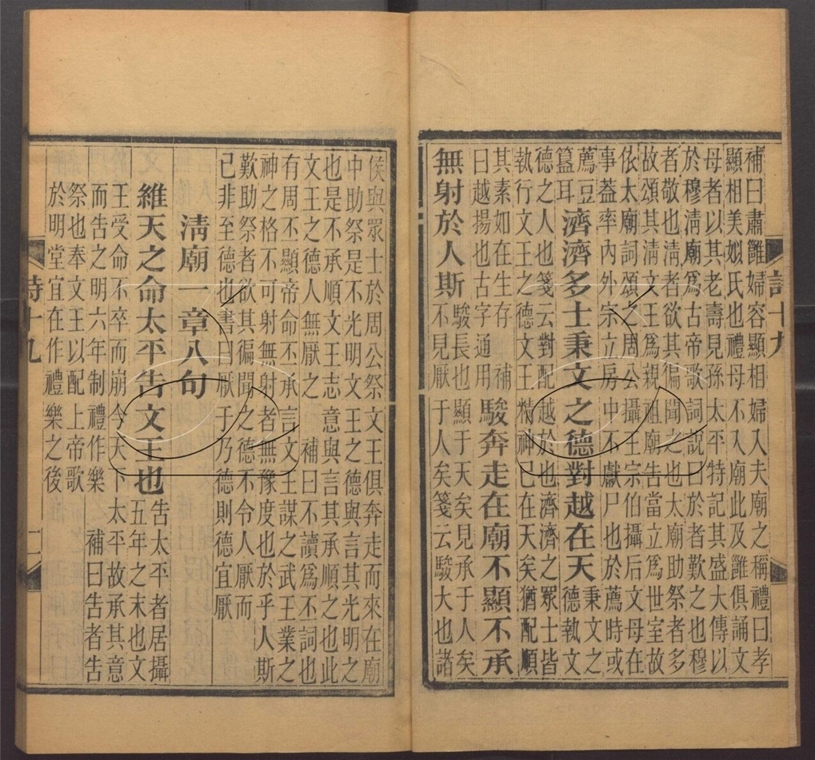 補曰肅雝婦容顯相婦入夫廟之稱禮曰孝
顯相美姒氏也禮母不入廟此及雝俱誦文
母者以其老壽見孫太平特記其盛大傳以
於穆淸廟爲古帝歌詞說曰於者歎之也穆
者敬也淸者欲其徧聞之也太廟助祭者多
故頌其淸文王爲親祖廟告當立爲世室故
依太廟詞頌之周公攝王宗伯攝后文母在
事葢率內外宗立房中不獻尸也於薦時或
薦豆
簋耳
濟濟多士秉文之德對越在天
秉文之
德執文
德之人也箋云對配越於也濟濟之眾士皆
執行文王之德文王精神已在天矣猶配順
其素如在生存 補
曰越揚也古字通用
駿奔走在廟不顯不承
無射於人斯
駿長也顯于天矣見承于人矣
不見厭于人矣箋云駿大也諸
詩十九
侯與眾士於周公祭文王俱奔走而來在廟
中助祭是不光明文王之德與言其光明之
也是不承順文王志意與言其承順之也此
文王之德人無厭之 補曰不讀爲不詞也
有周不顯帝命不承言文王謀之武王業之
神之格不可射無射者無豫度也於乎人斯
歎助祭者欲其徧聞之德不令人厭而
已非至德也書曰厭于乃德則德宜厭
淸廟一章八句
維天之命太平告文王也
告太平者居攝
五年之末也文
王受命不卒而崩今天下太平故承其意
而告之明六年制禮作樂 補曰告者告
祭也奉文王以配上帝歌
於明堂宜在作禮樂之後
詩十九